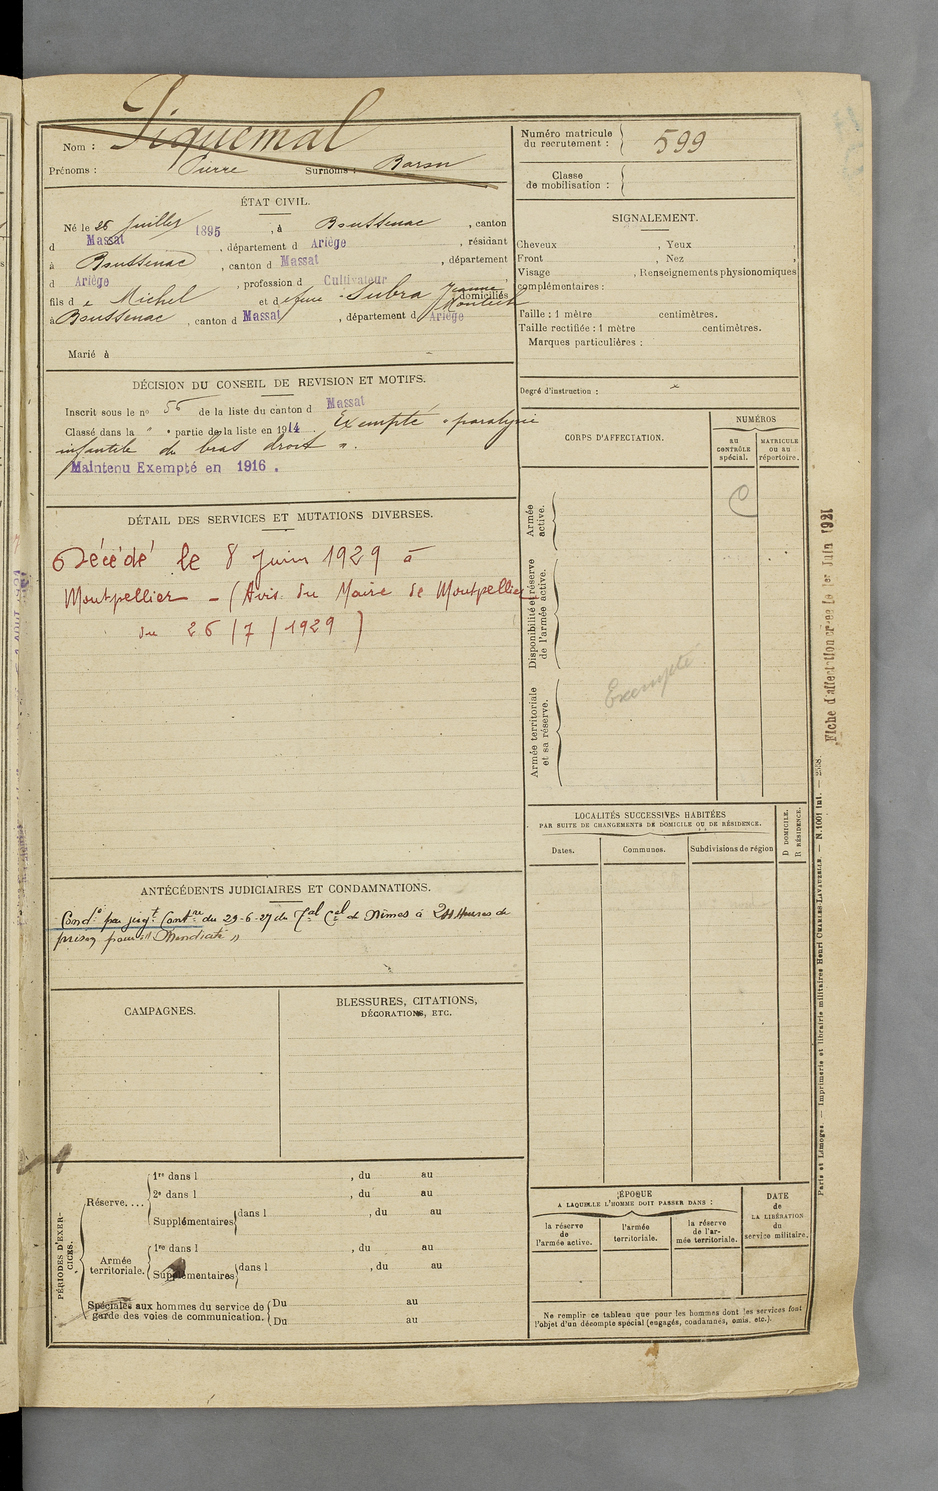 Nom : Piquemal
Prénoms : Pierre Surnoms : Baron
Numéro matricule du recrutement : 599
Classe de mobilisation :
ÉTAT CIVIL.
Né le 26 Juillet 1895, à Boussenac, canton
d Massat, département d Ariège, résidant
à Boussenac, canton d Massat, département
d Ariège, profession d Cultivateur,
fils de Michel et de feue Subra Jeanne domiciliés
à Boussenac, canton d Massat, département d Ariège
Marié à
SIGNALEMENT.
Cheveux , Yeux ,
Front , Nez ,
Visage , Renseignements physionomiques
complémentaires :
Taille : 1 mètre centimètres.
Taille rectifiée : 1 mètre centimètres.
Marques particulières :
Degré d'instruction :
DÉCISION DU CONSEIL DE REVISION ET MOTIFS.
Inscrit sous le no 56 de la liste du canton d Massat
Classé dans la " " partie de la liste en 1914. Exempté "paralysie
infantile du bras droit".
Maintenu Exempté en 1916.
CORPS D'AFFECTATION.
NUMÉROS
au CONTRÔLE spécial.
MATRICULE ou au répertoire.
Armée active.
Disponibilité et réserve de l'armée active.
Armée territoriale et sa réserve.
Exempté
DÉTAIL DES SERVICES ET MUTATIONS DIVERSES.
Décédé le 8 Juin 1929 à
Montpellier - (Avis du Maire de Montpellier
du 26/7/1929)
LOCALITÉS SUCCESSIVES HABITÉES
PAR SUITE DE CHANGEMENTS DE DOMICILE OU DE RÉSIDENCE.
Dates.
Communes.
Subdivisions de région
D DOMICILE.
R RÉSIDENCE.
ANTÉCÉDENTS JUDICIAIRES ET CONDAMNATIONS.
Condé par jugt Contre du 29-6-27 du Tal Cel de Nîmes à 24 Heures de
prison pour "Mendicité"
CAMPAGNES.
BLESSURES, CITATIONS,
DÉCORATIONS, ETC.
PÉRIODES D'EXERCICES.
Réserve....
1re dans l , du au
2e dans l , du au
Supplémentaires dans l , du au
Armée territoriale.
1re dans l , du au
Supplémentaires dans l , du au
Spéciales aux hommes du service de garde des voies de communication.
Du au
Du au
ÉPOQUE
A LAQUELLE L'HOMME DOIT PASSER DANS :
la réserve de l'armée active.
l'armée territoriale.
la réserve de l'armée territoriale.
DATE de LA LIBÉRATION du service militaire.
Ne remplir ce tableau que pour les hommes dont les services font
l'objet d'un décompte spécial (engagés, condamnés, omis, etc.).
Fiche d'affectation créée le 1er Juin 1921
Paris et Limoges. — Imprimerie et librairie militaires Henri CHARLES-LAVAUZELLE. — N. 1001 int.